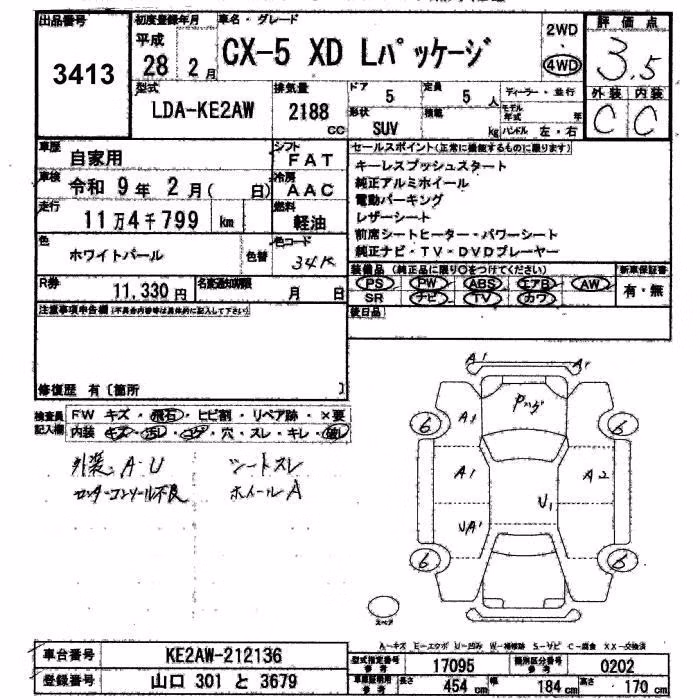 出品番号 初度登録年月 車名・グレード 2WD 評価点
3413 平成 28年 2月 CX-5 XD Lパッケージ 4WD 3.5
型式 排気量 ドア 定員 ディーラー・並行 外装 内装
LDA-KE2AW 2188 cc 5 5 人 モデル年式 年 C C
形状 SUV 積載 kg ハンドル 左・右
車歴 自家用 シフト FAT セールスポイント(正常に機能するものに限ります)
キーレスプッシュスタート
車検 令和 9年 2月( 日) 冷房 AAC 純正アルミホイール
電動パーキング
走行 11万4千799 km 燃料 軽油 レザーシート
前席シートヒーター・パワーシート
色 ホワイトパール 色替 色コード 34K 純正ナビ・TV・DVDプレーヤー
装備品(純正品に限り○をつけてください) 新車保証書
R券 11,330円 名変通知期限 月 日 PS PW ABS エアB AW 有・無
SR ナビ TV カワ
注意事項申告欄(不具合内容等は具体的に記入して下さい) 後日品
修復歴 有〔箇所 〕
検査員記入欄 FW キズ・飛石・ヒビ割・リペア跡・×要
内装 キズ・汚レ・コゲ・穴・スレ・キレ・破レ
外装 A・U シートスレ
センターコンソール不良 ホイールA
A1
A1
6 A1 6
A1 A2
U1
UA1
6 6
スペア
A-キズ E-エクボ U-凹み W-補修跡 S-サビ C-腐食 XX-交換済
車台番号 KE2AW-212136 型式指定番号 参考 17095 類別区分番号 参考 0202
登録番号 山口 301 と 3679 車庫証明用 参考 長さ 454 cm 幅 184 cm 高さ 170 cm